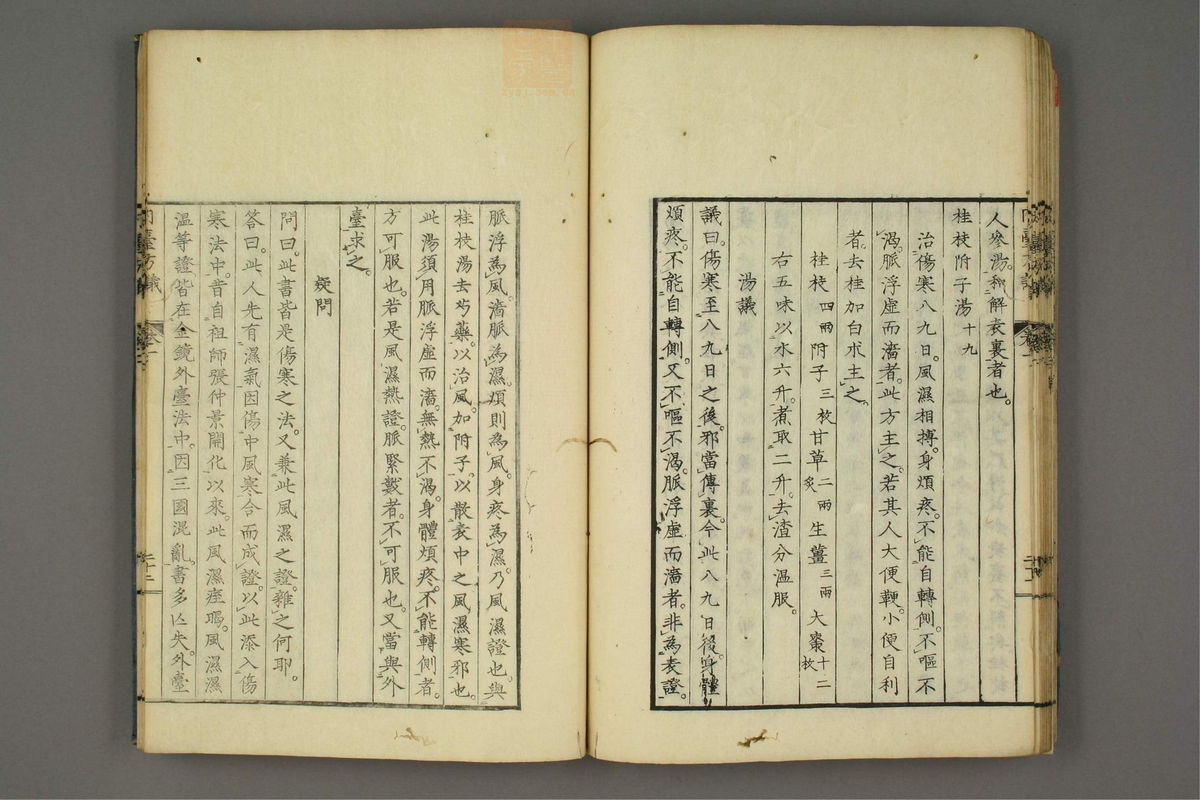 人參湯。和解表裏者也。
桂枝附子湯 十九
治傷寒八九日。風濕相搏。身煩疼。不能自轉側。不嘔不
渴。脈浮虛而濇者。此方主之。若其人大便鞕。小便自利
者。去桂加白朮主之。
桂枝四兩附子三枚甘草二兩炙生薑三兩大棗十二枚
右五味以水六升。煮取二升。去渣分溫服。
湯議
議曰。傷寒至八九日之後。邪當傳裏。今此八九日後。身體
煩疼。不能自轉側。又不嘔不渴。脈浮虛而濇者。非為表證。
脈浮為風。濇脈為濕。煩則為風。身疼為濕。乃風濕證也。與
桂枝湯去芍藥。以治風。加附子。以散表中之風濕寒邪也。
此湯。須用脈浮虛而濇。無熱不渴。身體煩疼。不能轉側者。
方可服也。若是風濕熱證。脈緊數者。不可服也。又當與外
臺求之。
疑問
問曰。此書皆是傷寒之法。又兼此風濕之證。雜之何耶。
答曰。此人先有濕氣因傷中風寒合而成證。以此添入傷
寒法中。昔自祖師張仲景開化以來。此風濕痓暍。風濕濕
溫等證皆在金鏡外臺法中。因三國混亂。書多亾失。外臺
內臺方議 卷一 二十二